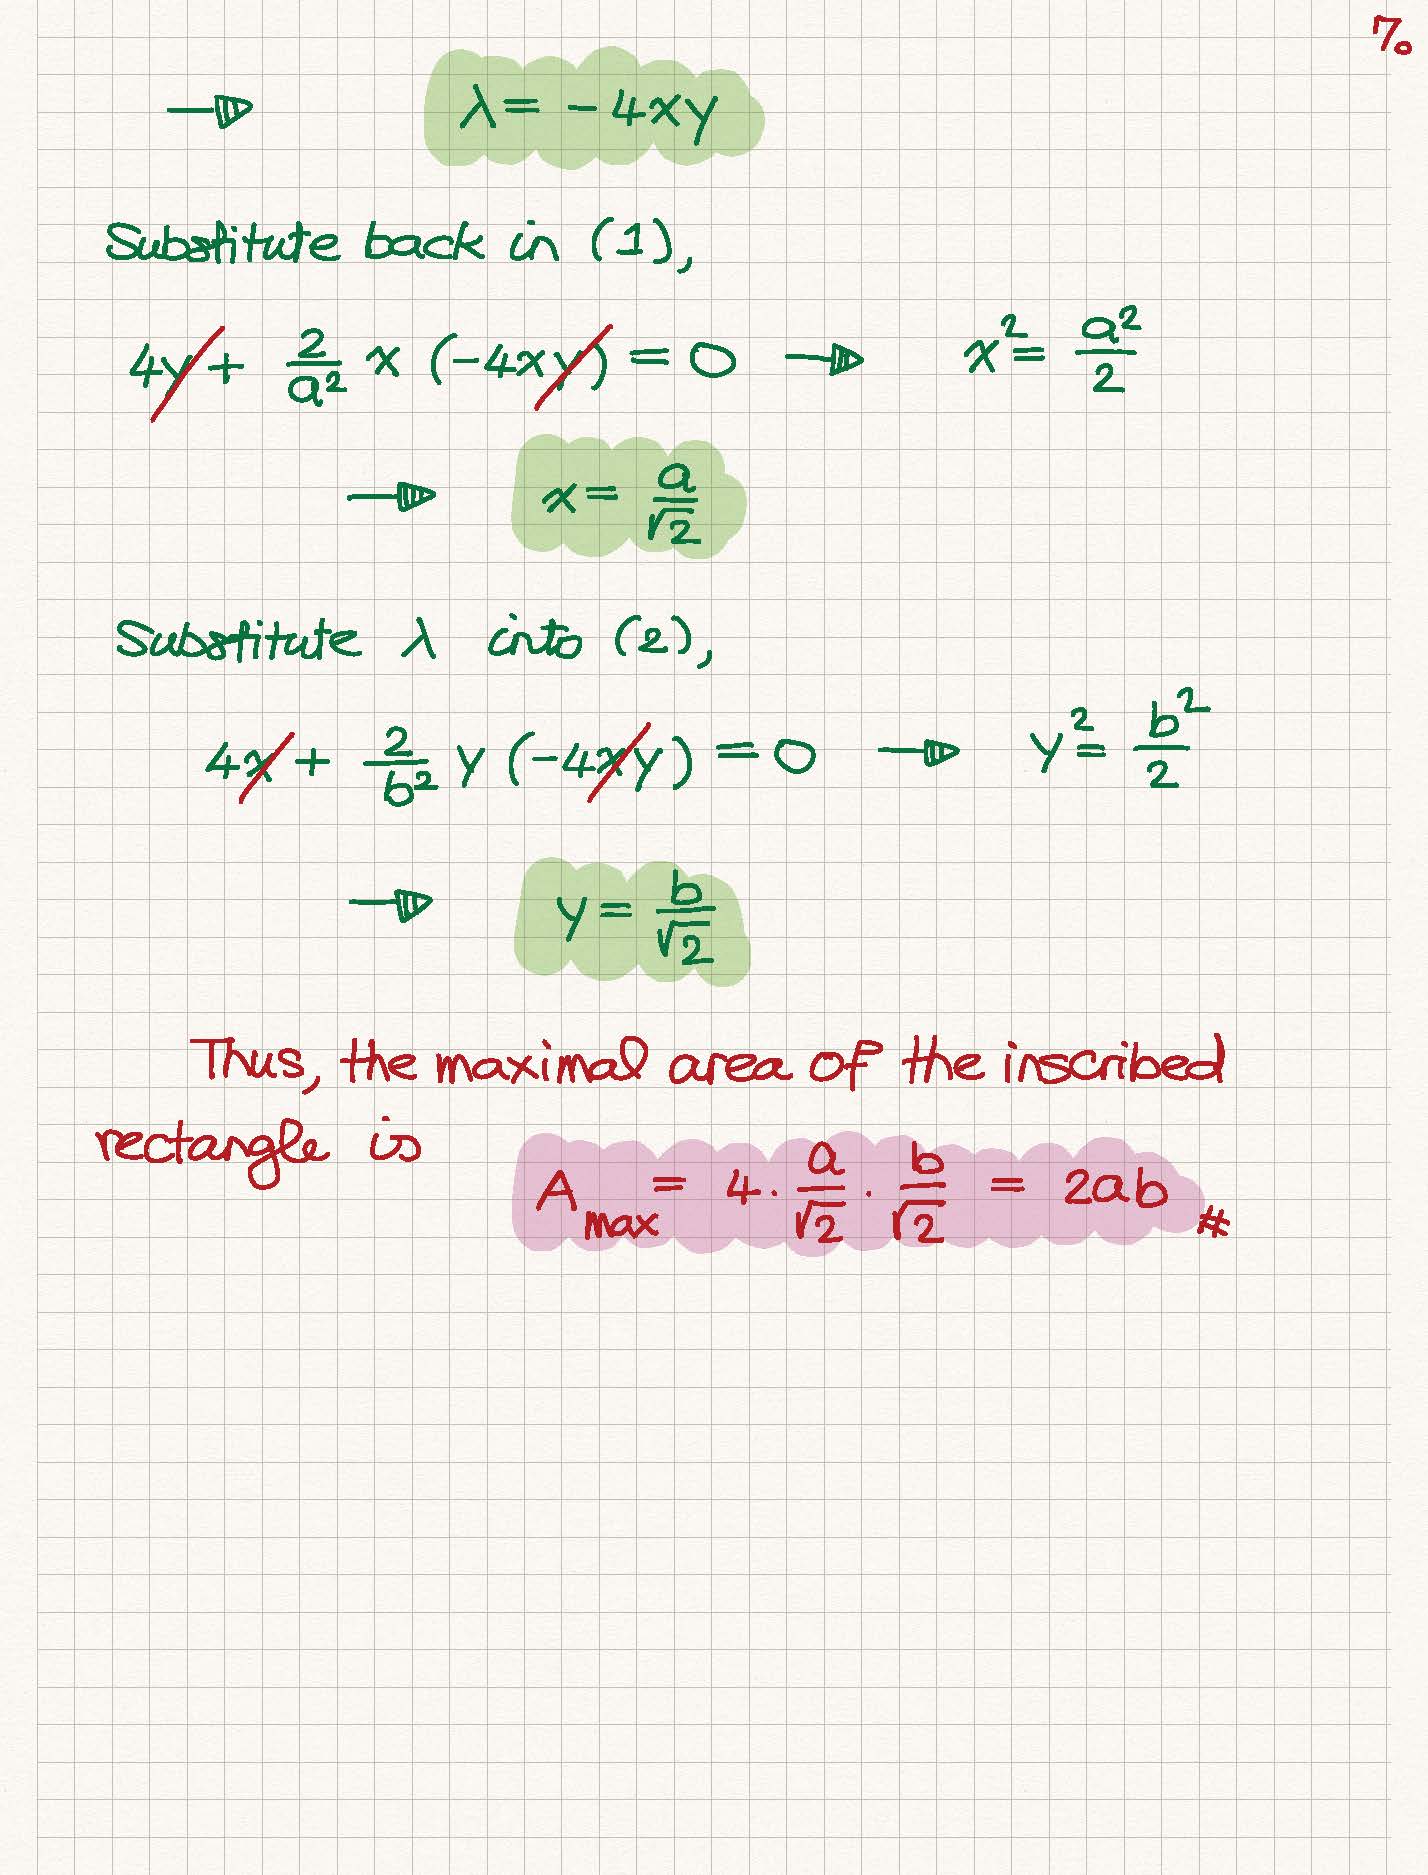 7.
→ λ = -4xy
Substitute back in (1),
4y + 2/a² x (-4xy) = 0 → x² = a²/2
→ x = a/√2
Substitute λ into (2),
4x + 2/b² y (-4xy) = 0 → y² = b²/2
→ y = b/√2
Thus, the maximal area of the inscribed
rectangle is
A_max = 4 · a/√2 · b/√2 = 2ab #